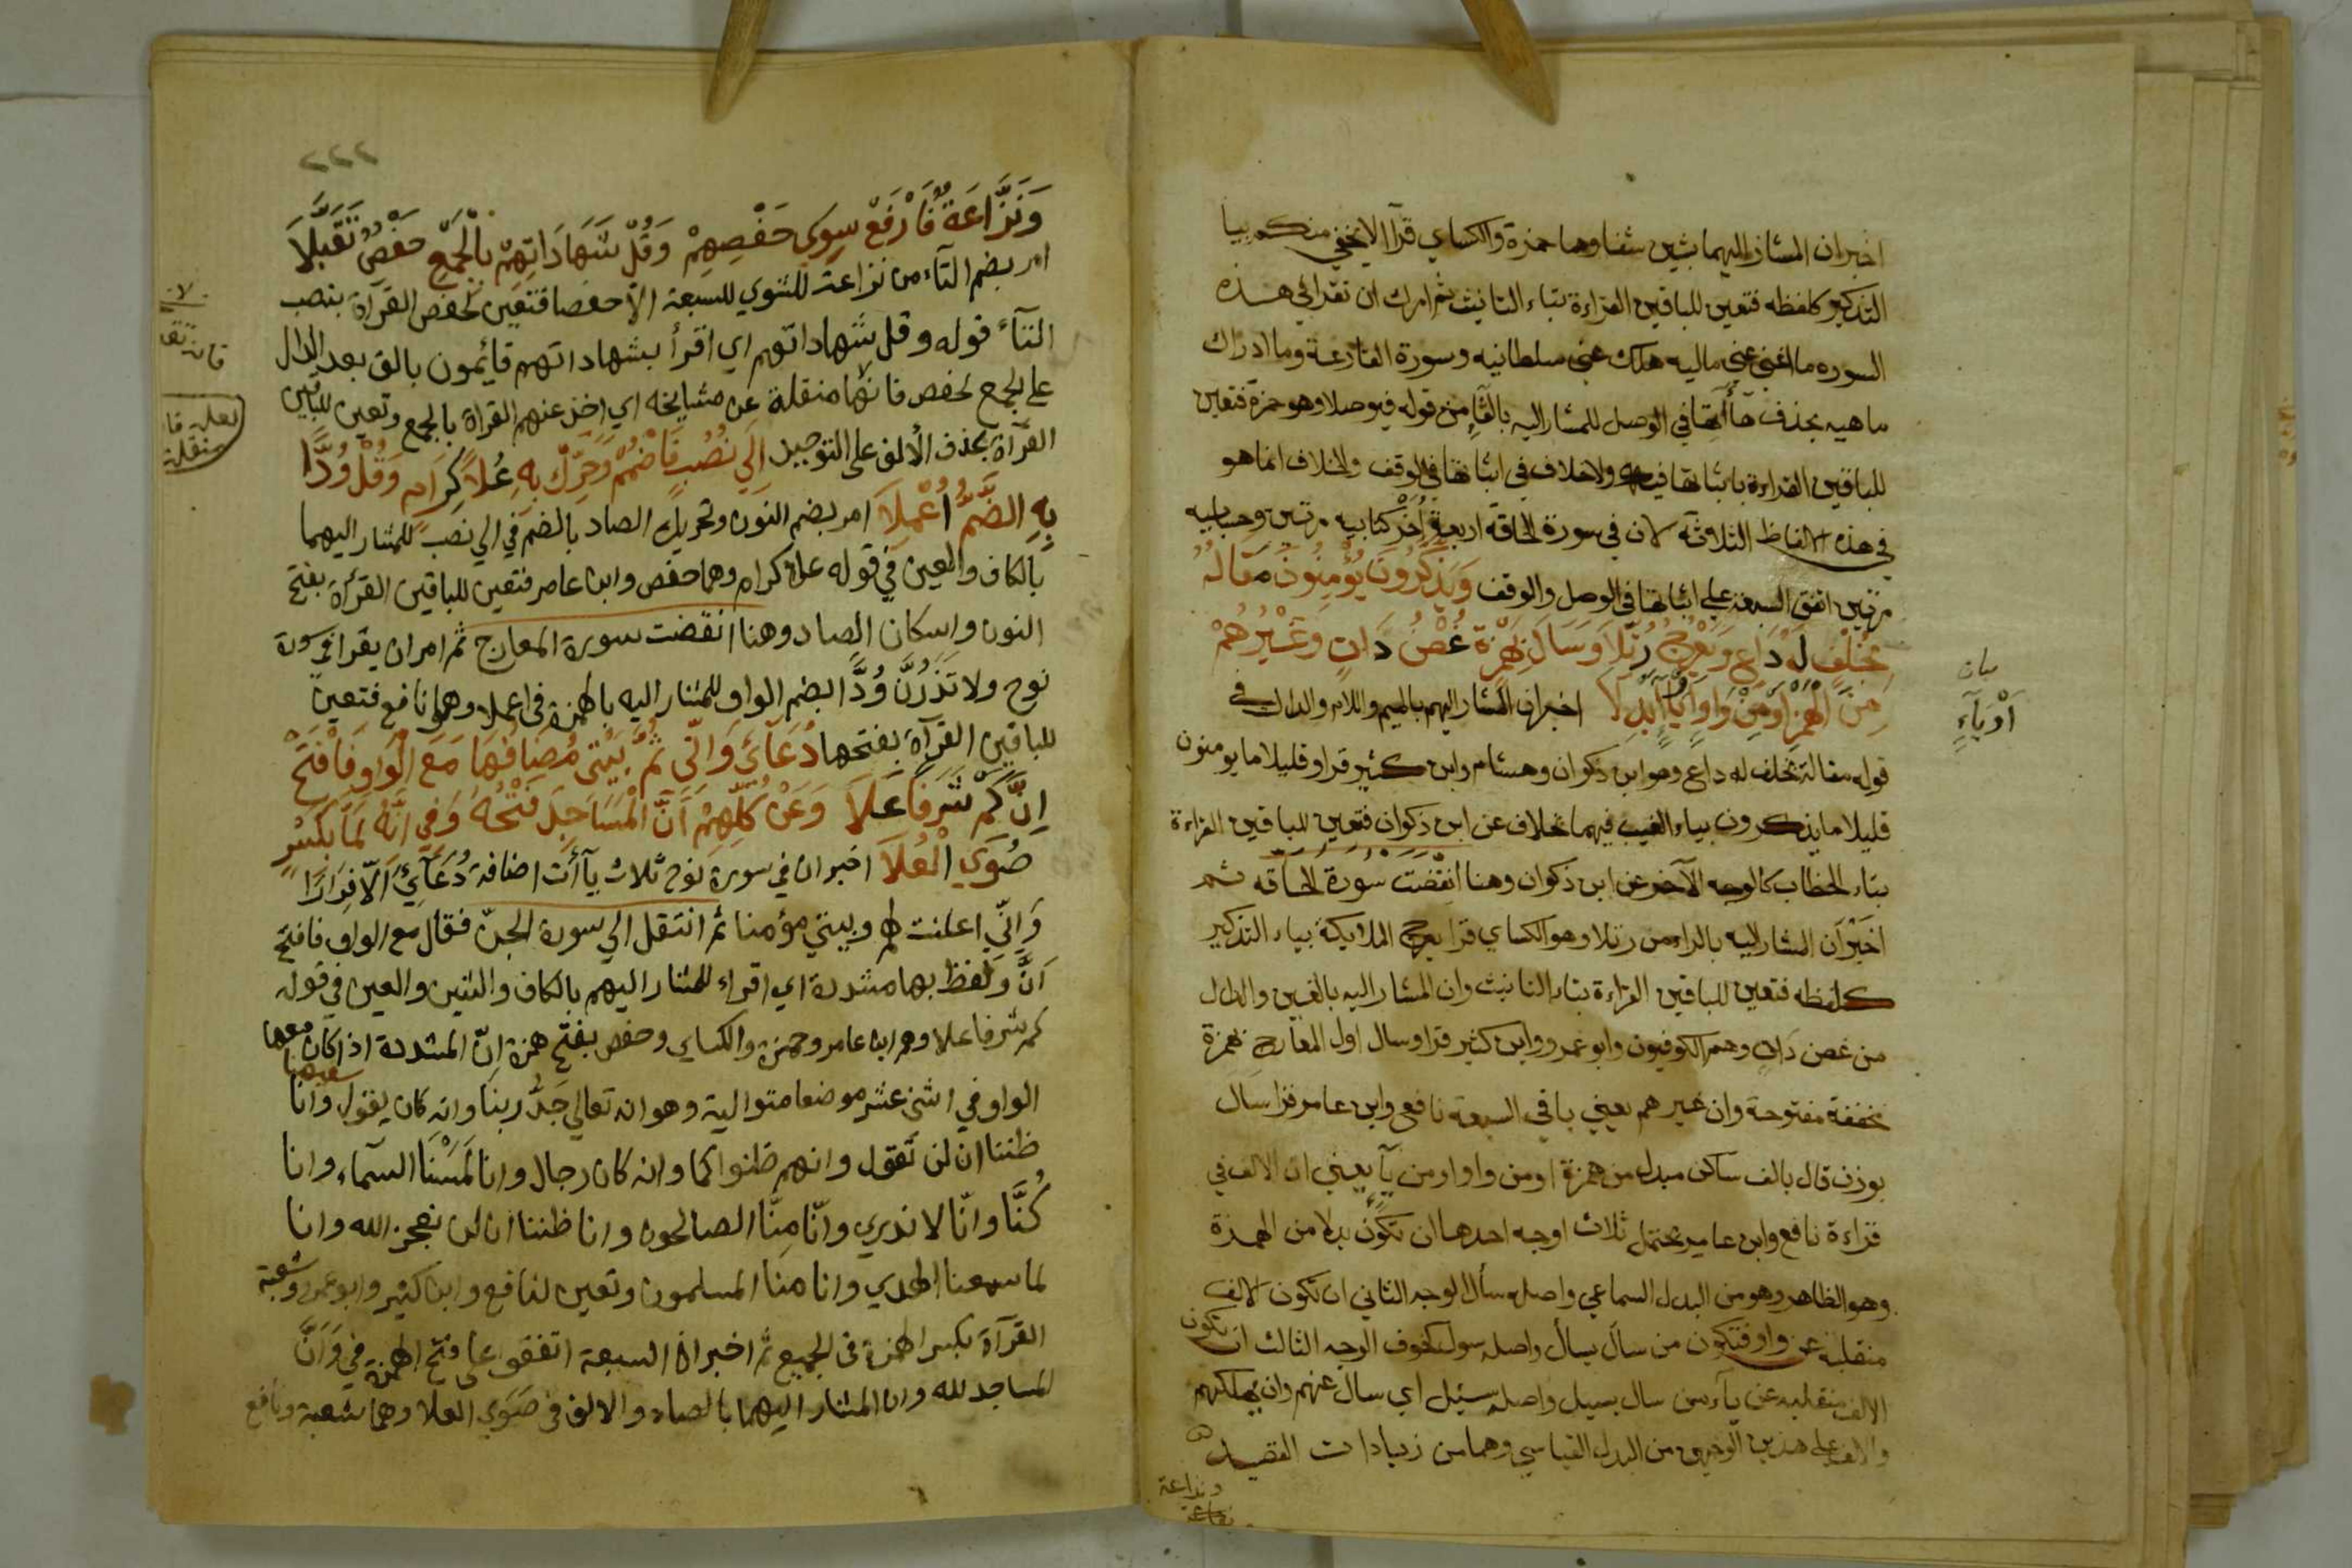 اخبر ان المشار اليهما بشين شفا وهما حمزة والكساي قرآ لا يخفي منكم بيا
التذكير كلفظه فتعين للباقين القراءة بتاء التانيث ثم امرك ان تقرا في هذه
السوره ما اغني عني ماليه هلك عني سلطانيه وسورة القارعة وما ادراك
ماهيه بحذف هاآتها في الوصل للمشار اليه بالفاء من قوله فيوصلا وهو حمزة فتعين
للباقين القراءة باثباتها فيه ولا خلاف في اثباتها في الوقف والخلاف انما هو
في هذه الالفاظ الثلاثة لان في سورة الحاقة اربعة اخر كتابيه مرتين وحسابيه
مرتين اتفق السبعة علي اثباتها في الوصل والوقف وَيَذَّكَّرُونَ يُؤْمِنُونَ مَقَالُهُ
بِخُلْفٍ لَهُ دَاعٍ وَيَعْرُجُ رُتِّلَا وَسَالَ بِهَمْزَةٍ غُصْنُ دَانٍ وَغَيْرُهُمْ
مِنَ الْهَمْزِ اَوْ مِنْ وَاوٍ اَوْ يَاءٍ ابْدِلَا اخبر ان المشار اليهم بالميم واللام والدال في
قوله مقاله بخلف له داع وهو ابن ذكوان وهشام وابن كثير قراو قليلا ما يومنون
قليلا ما يذكرون بياء الغيب فيهما بخلاف عن ابن ذكوان فتعين للباقين القراءة
بتاء الخطاب كالوجه الآخر عن ابن ذكوان وهنا انقضت سورة الحاقه ثم
اخبر ان المشار اليه بالراء من رتلا وهو الكساي قرا يعرج الملايكة بياء التذكير
كلفظه فتعين للباقين القراءة بتاء التانيث وان المشار اليه بالغين والدال
من غصن دان وهم الكوفيون وابو عمرو وابن كثير قراو سال اول المعارج بهمزة
مخففة مفتوحة وان غيرهم يعني باقي السبعة نافع وابن عامر قرا سال
بوزن قال بالف ساكن مبدل من همزة او من واو او من يآ يعني ان الالف في
قراءة نافع وابن عامر يحتمل ثلاث اوجه احدها ان تكون بدلا من الهمزة
وهو الظاهر وهو من البدل السماعي واصله سأل الوجه الثاني ان تكون الالف
منقلبة عن واو فتكون من سال يسال واصله سول كخوف الوجه الثالث ان تكون
الالف منقلبه عن يآء من سال يسيل واصله سيل اي سال عنهم وان يهلكهم
والالف علي هذين الوجهين من البدل القياسي وهما من زيادات القصيد
ونزاعة
بيان
اَوْ يَآءٍ
٢٢٢
وَنَزَّاعَةٌ فَارْفَعْ سِوَى حَفْصِهِمْ وَقُلْ شَهَادَاتِهِمْ بِالْجَمْعِ حَفْصٌ تَقَبَّلَا
امر بضم التآء من نزاعة للشوي للسبعة الّا حفصا فتعين لحفص القرآة بنصب
التآء قوله وقل شهاداتهم اي اقرأ بشهاداتهم قايمون بالف بعد الدال
علي الجمع لحفص فانها منقلة عن مشايخه اي اخذ عنهم القراة بالجمع وتعين للباقين
القرآة بحذف الألف علي التوحيد اِلَي نُصُبٍ فَاضْمُمْ وَحَرِّكْ بِهِ عُلَا كِرَامٍ وَقُلْ وُدًّا
بِهِ الضَّمُّ اُعْمِلَا امر بضم النون وتحريك الصاد بالضم في الي نصب للمشار اليهما
بالكاف والعين في قوله علا كرام وهما حفص وابن عامر فتعين للباقين القرآة بفتح
النون واسكان الصاد وهنا انقضت سورة المعارج ثم امر ان يقرا في سورة
نوح ولا تذرنّ وُدًّا بضم الواو للمشار اليه بالهمزة في اعملا وهو نافع فتعين
للباقين القرآة بفتحها دُعَآئِي وَاِنِّي ثُمَّ بَيْتِي مُضَافُهَا مَعَ الْوَاوِ فَافْتَحْ
اِنَّ كَمْ شَرَفًا عَلَا وَعَنْ كُلِّهِمْ اَنَّ الْمَسَاجِدَ فَتْحُهُ وَفِي اِنَّهُ لَمَّا بِكَسْرٍ
صُوَي الْعُلَا اخبر ان في سورة نوح ثلاث يآأت اضافة دُعَآئِي اِلّا فِرَارًا
وَاِنّي اعلنت لهم وبيتي مؤمنا ثم انتقل الي سورة الجنّ فقال مع الواو فافتح
اَنَّ وَلفظ بها مشددة اي اقراء للمشار اليهم بالكاف والشين والعين في قوله
كم شرفا علا وهم ابن عامر وحمزة والكساي وحفص بفتح همزة اِنّ المشددة اذا كان معها
الواو في اثني عشر موضعا متوالية وهو انه تعالي جَدُّ ربنا وانه كان يقول وانا
ظننا ان لن تقول وانهم ظنوا كما وانه كان رجال وانا لمسنا السمآء وانا
كُنَّا وانّا لا ندري وانّا مِنَّا الصالحون وانا ظننا ان لن نعجز الله وانا
لما سمعنا الهدي وانا منا المسلمون وتعين لنافع وابن كثير وابو عمرو وشعبة
القرآة بكسر الهمزة في الجميع ثم اخبر ان السبعة اتفقوا علي فتح الهمزة في وَاَنَّ
المساجد لله وان المشار اليهما بالصاد والالف في صوي العلا وهما شعبة ونافع
لعله فا
منقلة